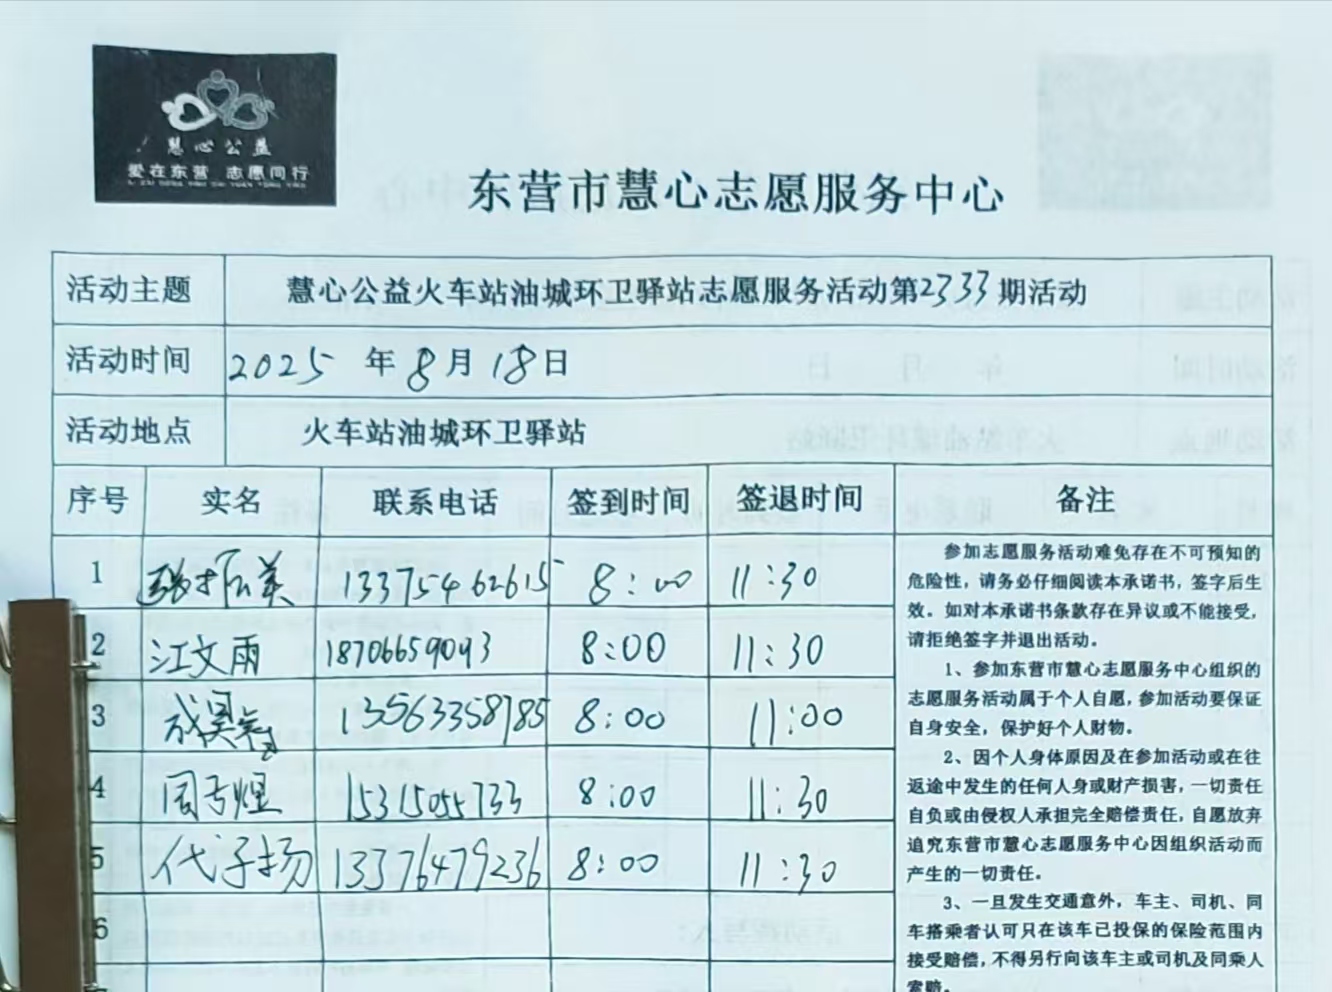 慧心公益
爱在东营 志愿同行
东营市慧心志愿服务中心
活动主题 慧心公益火车站油城环卫驿站志愿服务活动第2733期活动
活动时间 2025年8月18日
活动地点 火车站油城环卫驿站
序号 实名 联系电话 签到时间 签退时间 备注
1 13375462615 8:00 11:30
2 江文雨 18706659093 8:00 11:30
3 13563358785 8:00 11:00
4 周子煜 15315055733 8:00 11:30
5 代子扬 13376479236 8:00 11:30
6
参加志愿服务活动难免存在不可预知的
危险性，请务必仔细阅读本承诺书，签字后生
效。如对本承诺书条款存在异议或不能接受，
请拒绝签字并退出活动。
1、参加东营市慧心志愿服务中心组织的
志愿服务活动属于个人自愿，参加活动要保证
自身安全，保护好个人财物。
2、因个人身体原因及在参加活动或在往
返途中发生的任何人身或财产损害，一切责任
自负或由侵权人承担完全赔偿责任，自愿放弃
追究东营市慧心志愿服务中心因组织活动而
产生的一切责任。
3、一旦发生交通意外，车主、司机、同
车搭乘者认可只在该车已投保的保险范围内
接受赔偿，不得另行向该车主或司机及同乘人
索赔。